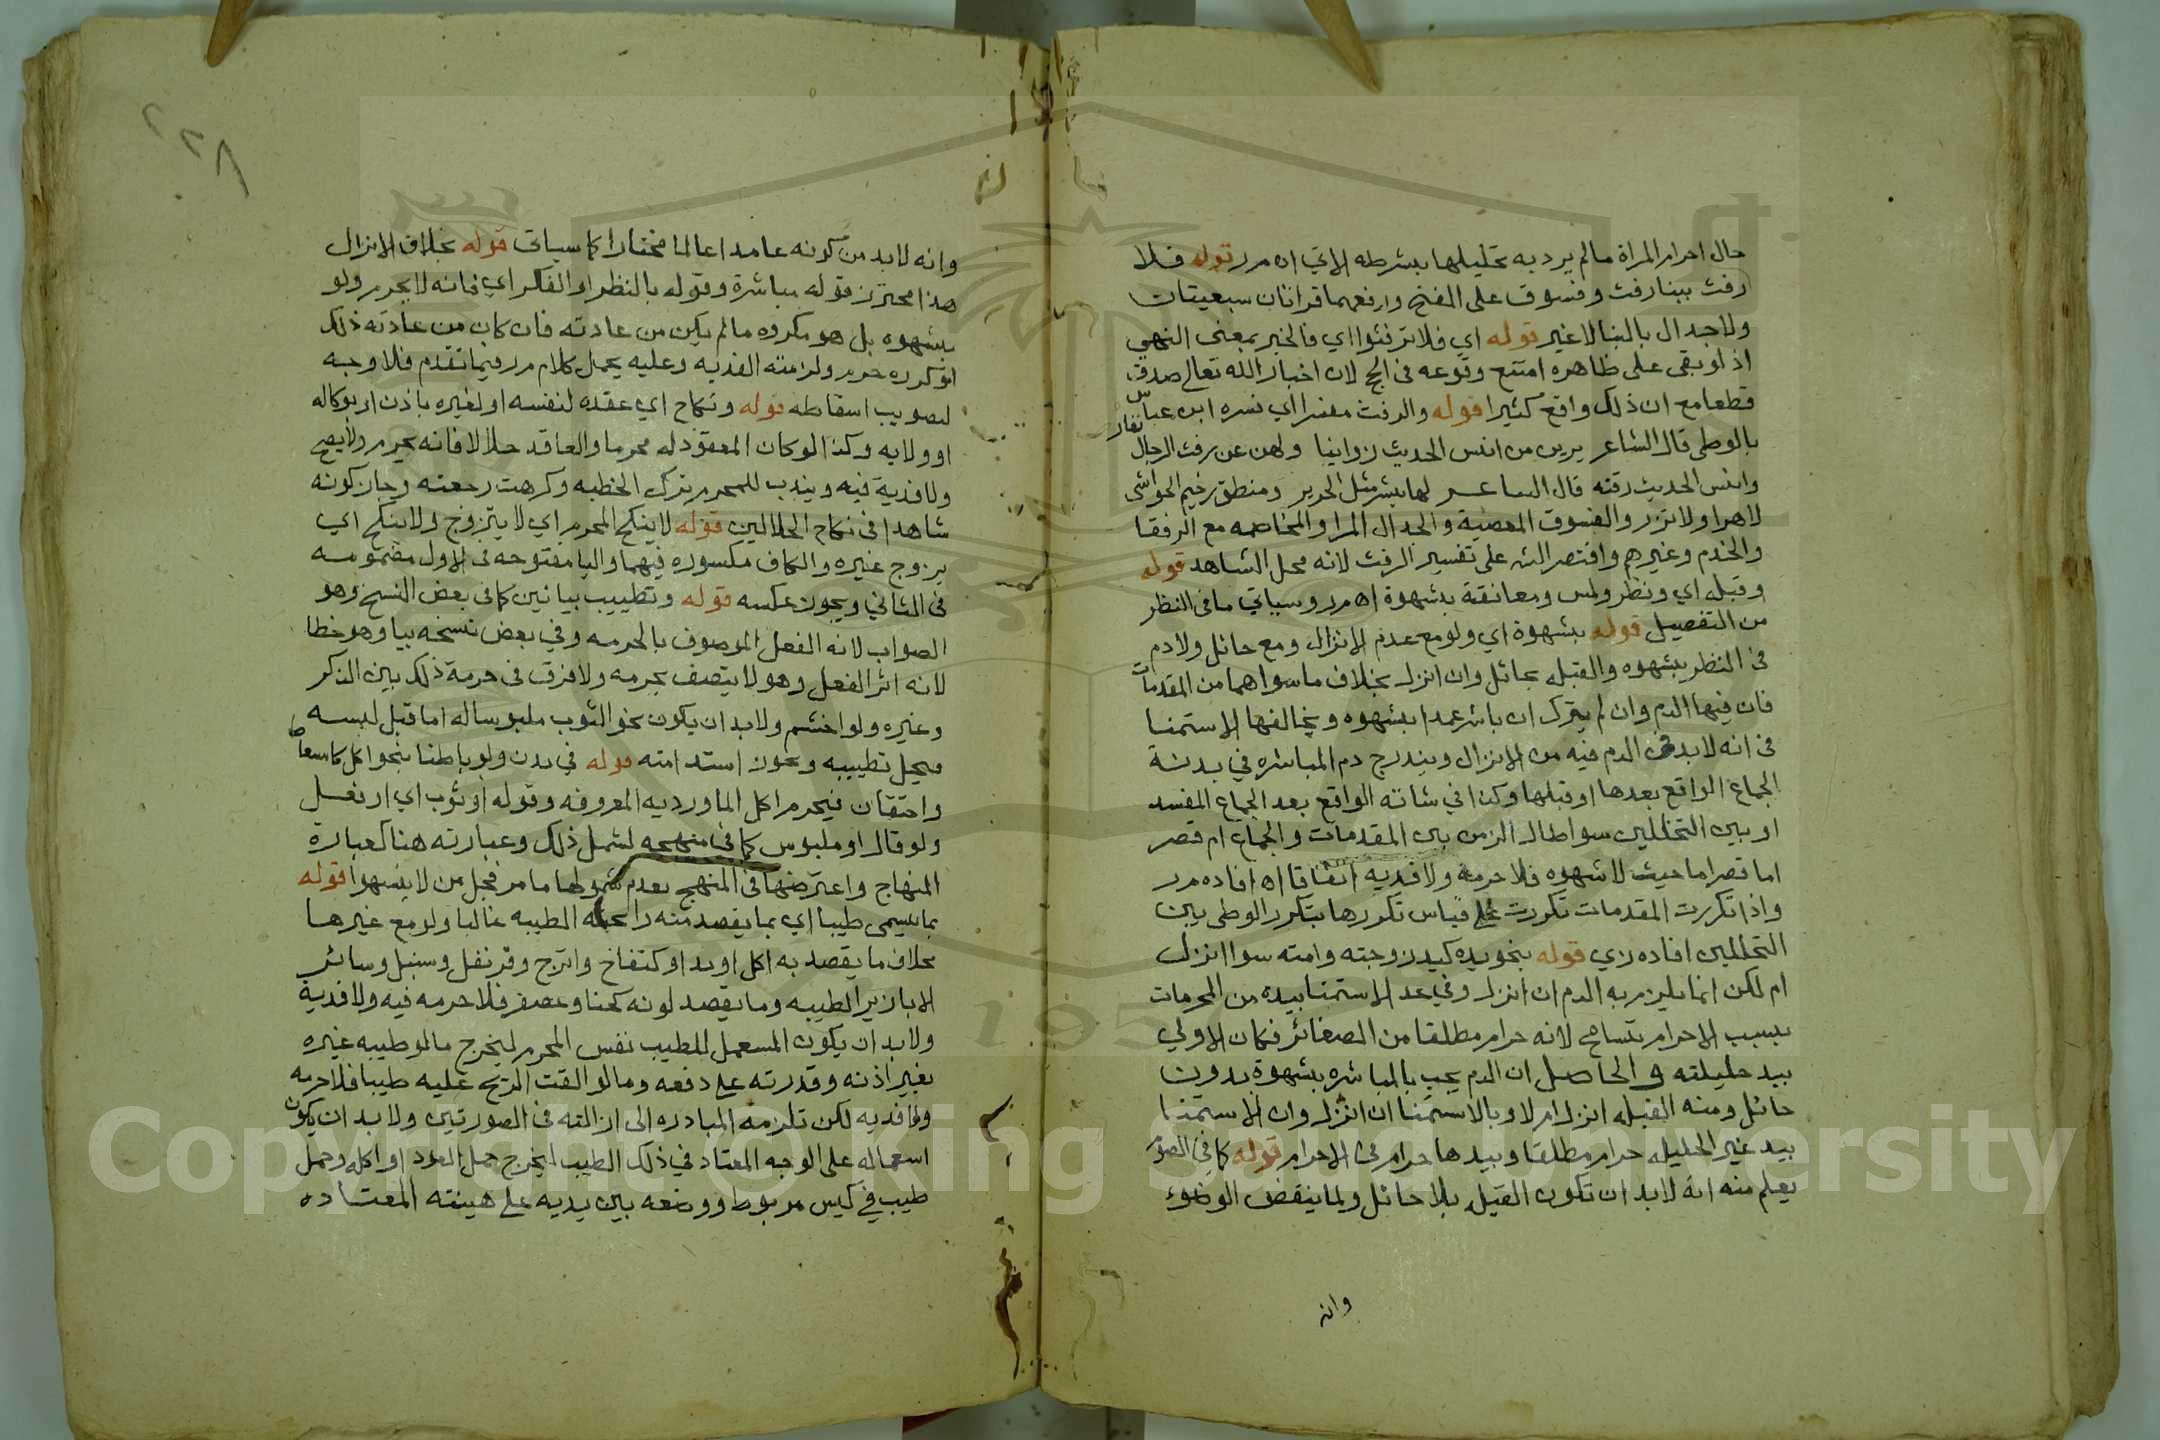 حال احرام المراة مالم يرد به تحليلها بشرطه الاتي اه م ر قوله فلا
رفث ببنا رفث وفسوق على الفتح ورفعهما قراتان سبعيتان
ولا جدال بالبنا لا غير قوله اي فلا ترفثوا اي فالخبر بمعنى النهي
اذ لو بقي على ظاهره امتنع وقوعه في الحج لان اخبار الله تعالى صدق
قطعا مع ان ذلك واقع كثيرا قوله والرفث مفسر اي فسره ابن عباس
بالوطى قال الشاعر يرين من انس الحديث زوانيا ولهن عن رفث الرجال نفار
وانس الحديث رقته قال الشاعر لها بشر مثل الحرير ومنطق رخيم الحواشى
لا هرا ولا نزر والفسوق المعصية والجدال المرا والمخاصمه مع الرفقا
والخدم وغيرهم واقتصر الش على تفسير الرفث لانه محل الشاهد قوله
وقبله اي ونظر ولمس ومعانقة بشهوة اه م ر وسياتي ما في النظر
من التفصيل قوله بشهوة اي ولو مع عدم الانزال ومع حائل ولا دم
في النظر بشهوه والقبله بحائل وان انزل بخلاف ما سواهما من المقدمات
فان فيها الدم وان لم ينزل ان باشر عمدا بشهوه ويخالفها الاستمنا
في انه لابد في الدم فيه من الانزال ويندرج دم المباشره في بدنة
الجماع الواقع بعدها او قبلها وكذا في شاته الواقع بعد الجماع المفسد
او بين التحللين سوا طال الزمن بين المقدمات والجماع ام قصر
اما قصر اما حيث لا شهوه فلا حرمة ولا فديه اتفاقا اه افاده م ر
واذا تكررت المقدمات تكررت على قياس تكررها بتكرر الوطى بين
التحللين افاده زي قوله بنحو يده كيد زوجته وامته سوا انزل
ام لكن انما يلزم به الدم ان انزل وفي عد الاستمنا بيده من المحرمات
بسبب الاحرام تسامح لانه حرام مطلقا من الصغائر فكان الاولي
بيد حليلته والحاصل ان الدم يجب بالمباشره بشهوة بدون
حائل ومنه القبله انزل ام لا وبالاستمنا ان انزل وان الاستمنا
بيد غير الحليله حرام مطلقا وبيدها حرام في الاحرام قوله كما في الصوم
يعلم منه انه لابد ان تكون القبل بلا حائل ولما ينقض الوضوء
وانه
٢٢٨
وانه لابد من كونه عامدا عالما مختارا كما سياتى قوله بخلاف الانزال
هذا محترز قوله مباشرة وقوله بالنظر او الفكر اي فانه لا يحرم ولو
بشهوه بل هو مكروه مالم يكن من عادته فان كان من عادته ذلك
او كرره حرم ولزمته الفديه وعليه يحمل كلام م ر فيما تقدم فلا وجه
لتصويب اسقاطه قوله ونكاح اي عقده لنفسه او لغيره باذن او بوكاله
او ولايه وكذا لو كان المعقود له محرما والعاقد حلالا فانه يحرم ولا يصح
ولا فدية فيه ويندب للمحرم ترك الخطبه وكرهت رجعته وجاز كونه
شاهدا في نكاح الحلالين قوله لا ينكح المحرم اي لا يتزوج ولا ينكح اي
يزوج غيره والكاف مكسوره فيهما واليا مفتوحه في الاول مضمومه
في الثاني ويجوز عكسه قوله وتطييب بيائين كما في بعض النسخ وهو
الصواب لانه الفعل الموصوف بالحرمه وفي بعض نسخه بيا وهو خطا
لانه اثر الفعل وهو لا يتصف بحرمه ولا فرق في حرمة ذلك بين الذكر
وغيره ولو اخشم ولابد ان يكون نحو الثوب ملبوسا له اما قبل لبسه
فيحل تطييبه وتجوز استدامته قوله في بدن ولو باطنا بنحو اكل كاسعاط
واحتقان فيحرم اكل الماورديه المعروفه وقوله او ثوب اي او نعل
ولو قال او ملبوس كما في منهجه لشمل ذلك وعبارته هنا كعبارة
المنهاج واعترضها في المنهج بعدم شمولها ما مر فجل من لا يسهوا قوله
بما يسمى طيبا اي بما يقصد منه رائحته الطيبه غالبا ولو مع غيرها
بخلاف ما يقصد به اكل او تداو كتفاح واترج وقرنفل وسنبل وسائر
الابازير الطيبه وما يقصد لونه كحنا وعصفر فلا حرمه فيه ولا فدية
ولابد ان يكون المستعمل للطيب نفس المحرم ليخرج ما لو طيبه غيره
بغير اذنه وقدرته على دفعه وما لو القت الريح عليه طيبا فلا حرمه
ولا فديه لكن تلزمه المبادره الى ازالته في الصورتين ولابد ان يكون
استعماله على الوجه المعتاد في ذلك الطيب ليخرج حمل العود او اكله وحمل
طيب في كيس مربوط ووضعه بين يديه على هيئته المعتاده